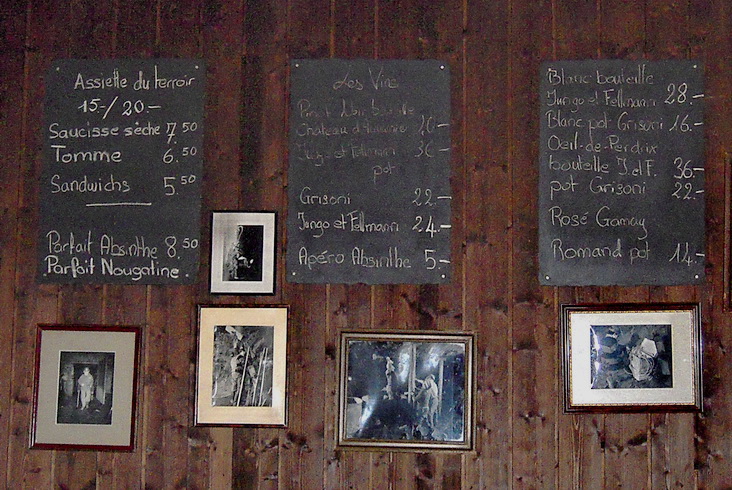 Assiette du terroir
15.-/ 20.-
Saucisse sèche 7.50
Tomme 6.50
Sandwichs 5.50
Parfait Absinthe 8.50
Parfait Nougatine.
Les Vins
Pinot Noir bouteille
Château d'Auvernier
Jungo et Fellmann
pot
Grisoni 22.-
Jungo et Fellmann 24.-
Apéro Absinthe 5.-
Blanc bouteille
Jungo et Fellmann 28.-
Blanc pot Grisoni 16.-
Oeil-de-Perdrix
bouteille J. et F. 36.-
pot Grisoni 22.-
Rosé Gamay
Romand pot 14.-